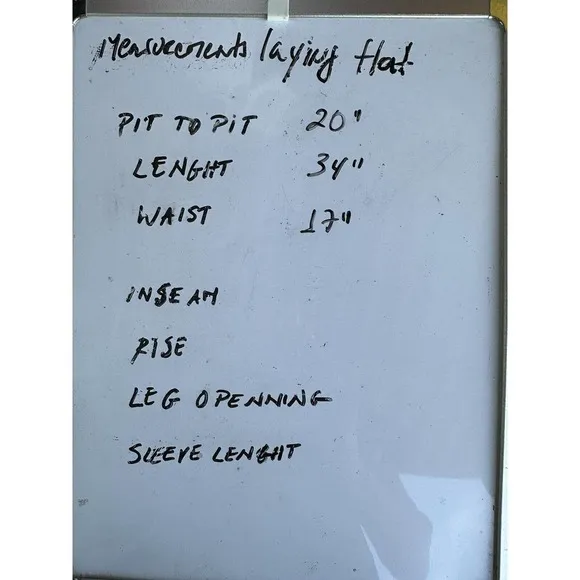 Measurements laying flat
PIT TO PIT 20"
LENGHT 34"
WAIST 17"
INSEAM
RISE
LEG OPENNING
SLEEVE LENGHT